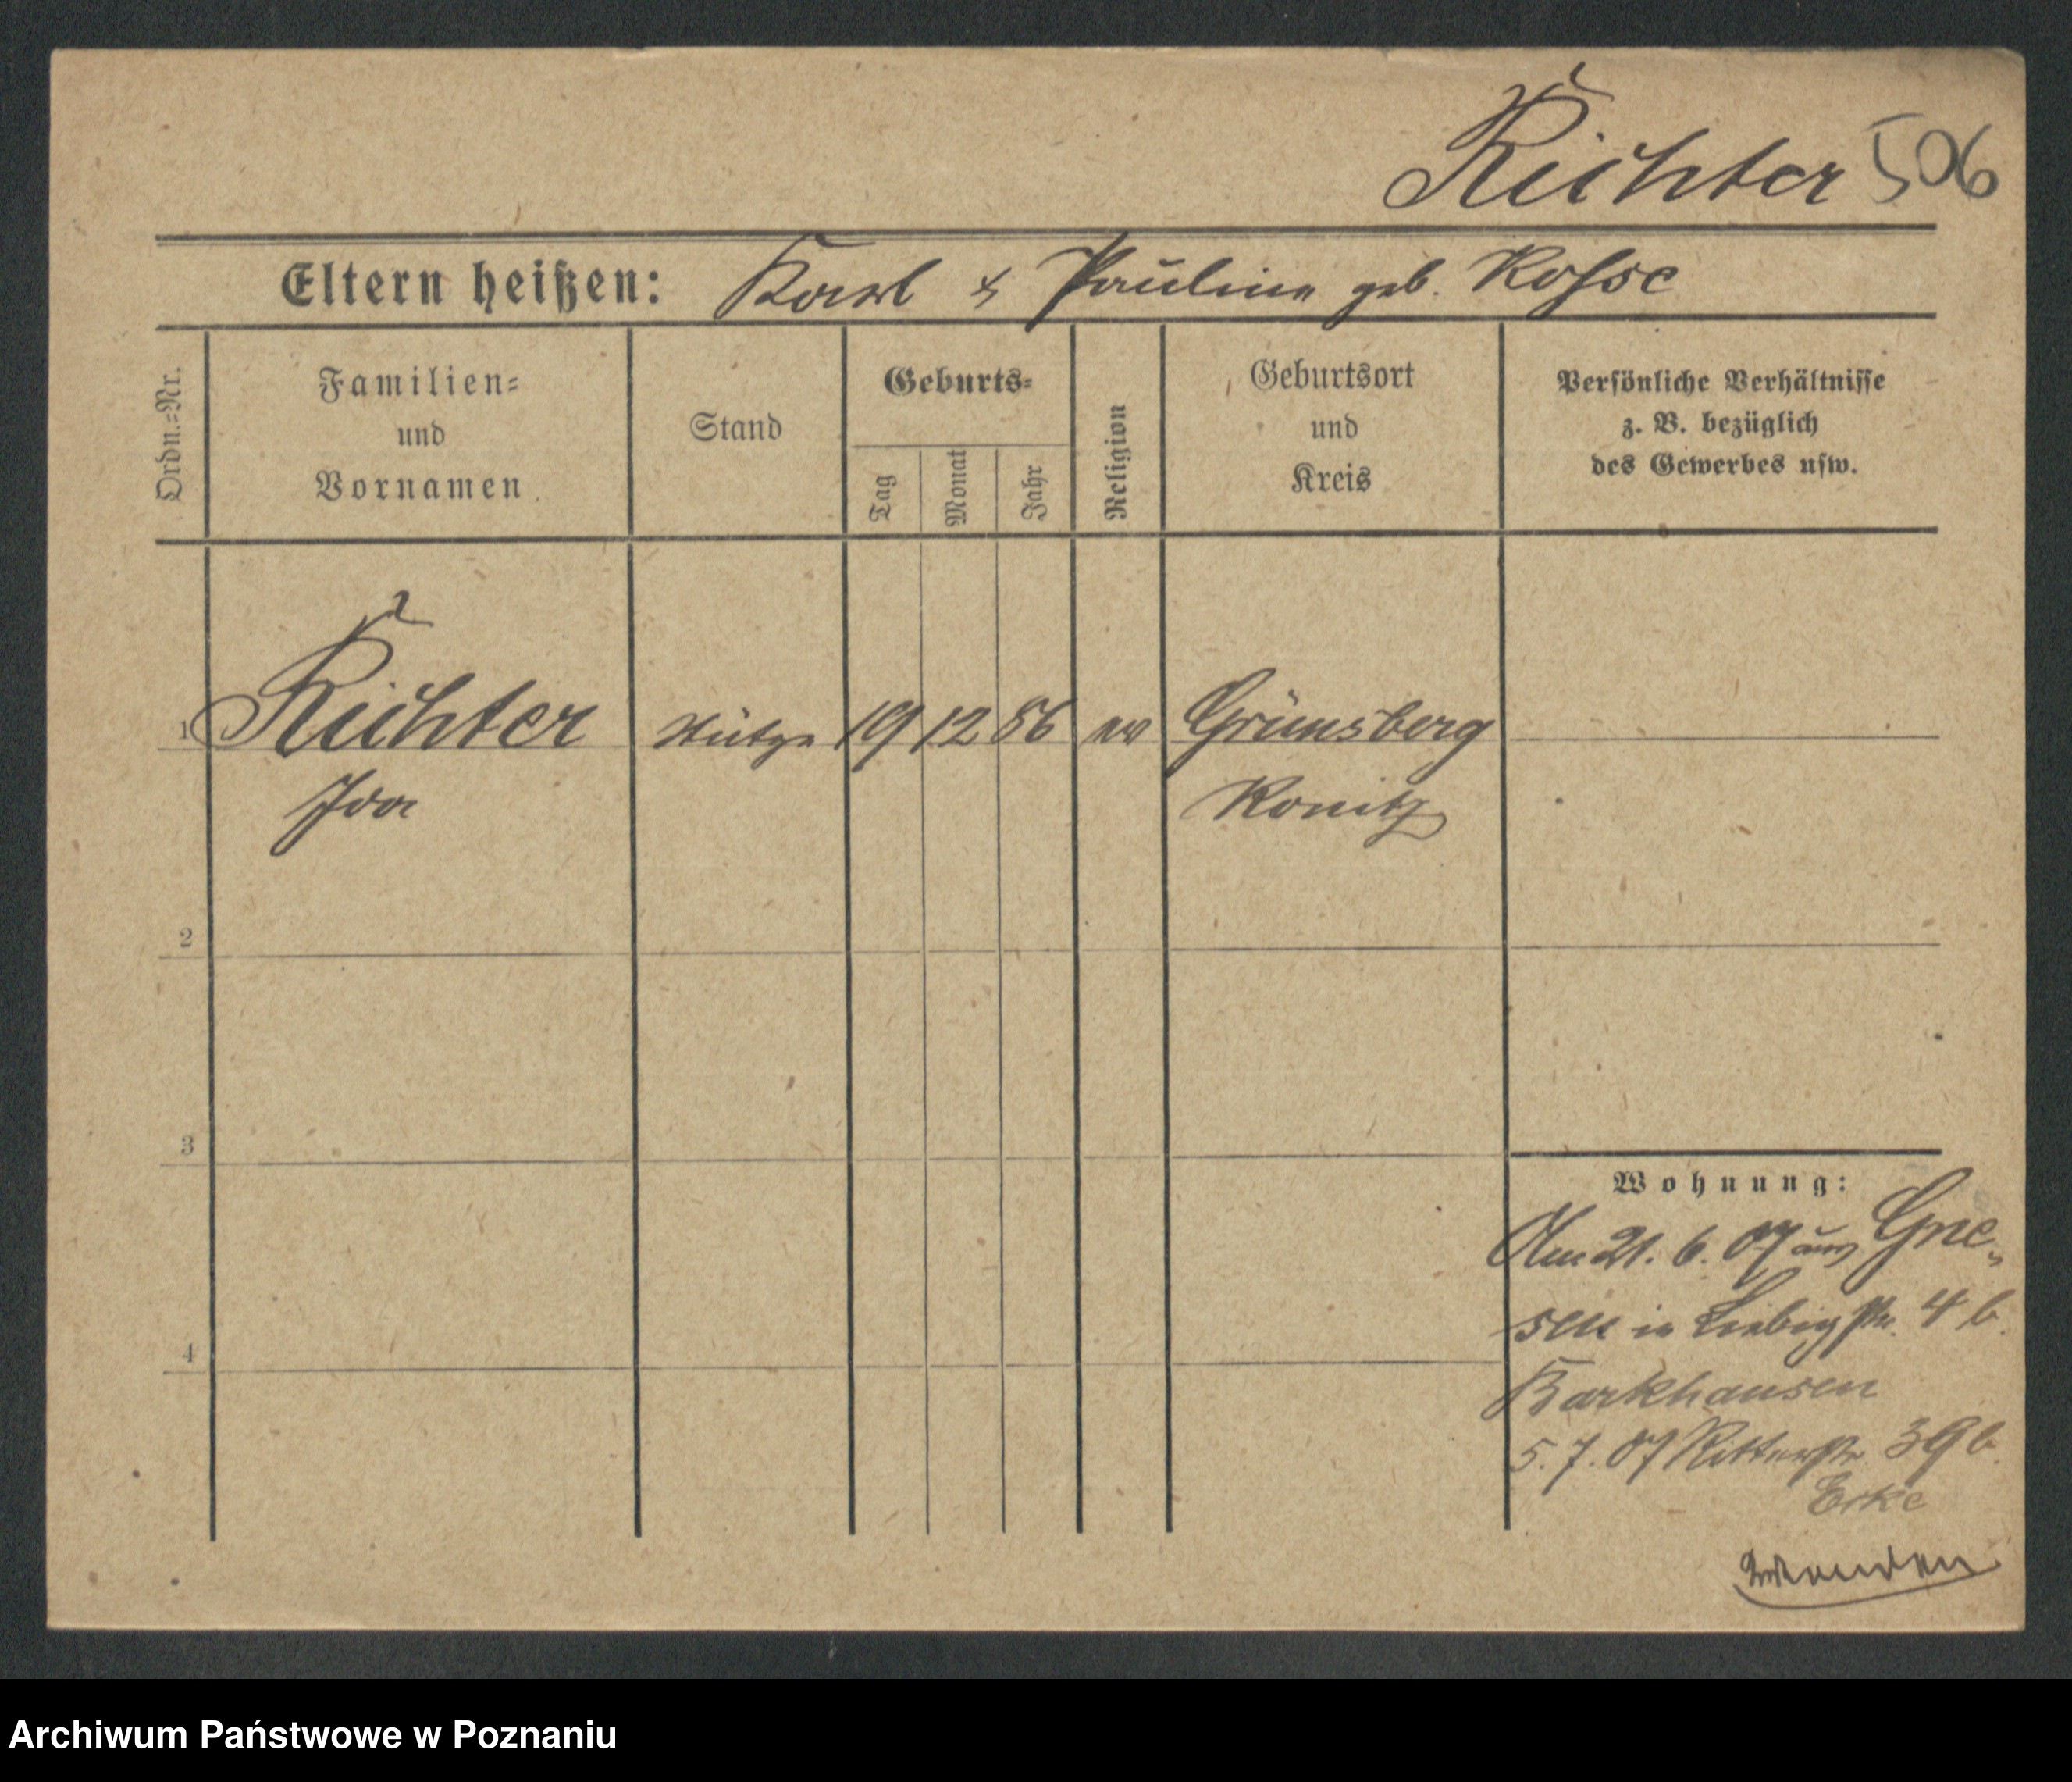 Richter 506
Eltern heißen: Karl & Pauline geb. Rosse
Ordn.=Nr.
Familien=
und
Vornamen
Stand
Geburts=
Tag
Monat
Jahr
Religion
Geburtsort
und
Kreis
Persönliche Verhältnisse
z. B. bezüglich
des Gewerbes usw.
1 Richter Stütze 19 12 86 ev Grünsberg
Ida Konitz
2
3
4
Wohnung:
Am 21. 6. 07 aus Gne-
sen in Liebigstr. 4 b.
Barkhausen
5. 7. 07 Ritterstr 39 b.
Erke
Wenden
Archiwum Państwowe w Poznaniu